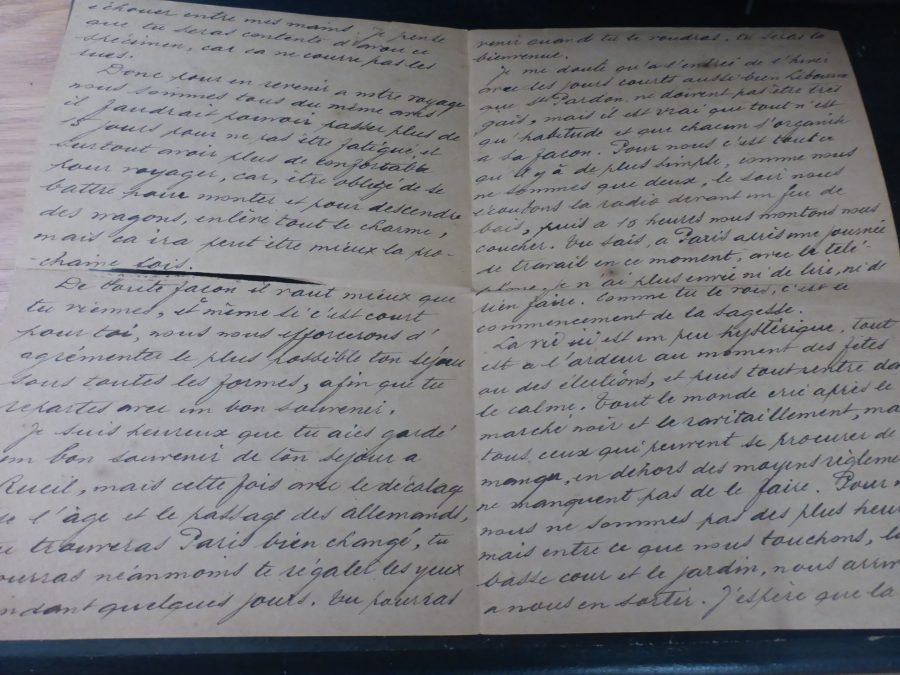 échouer entre mes mains. Je pense
que tu seras contente d'avoir ce
spécimen, car ca ne courre pas les
rues.
Donc pour en revenir a notre voyage
nous sommes tous du même avis
il faudrait pouvoir passer plus de
15 jours pour ne pas être fatigué, et
surtout avoir plus de confortable
pour voyager, car, être obligé de se
battre pour monter et pour descendre
des wagons, enlève tout le charme,
mais ca ira peut être mieux la pro-
-chaine fois.
De toute facon il vaut mieux que
tu viennes, et même si c'est court
pour toi, nous nous efforcerons d'
agrémenter le plus possible ton séjour
sous toutes les formes, afin que tu
repartes avec un bon souvenir.
Je suis heureux que tu aies gardé
un bon souvenir de ton sejour a
Rueil, mais cette fois avec le décalag
de l'âge et le passage des allemands,
tu trouveras Paris bien changé, tu
pourras néanmoins te régaler les yeux
ndant quelques jours. Tu pourras
venir quand tu le voudras, tu seras la
bienvenue.
Je me doute qu'a l'entrée de l'hiver
avec les jours courts aussi bien Libourne
que St Pardon ne doivent pas être très
gais, mais il est vrai que tout n'est
qu'habitude et que chacun s'organise
a sa facon. Pour nous c'est tout ce
qu'il y à de plus simple, comme nous
ne sommes que deux, le soir nous
écoutons la radio devant un feu de
bois, puis a 10 heures nous montons nous
coucher. Tu sais, a Paris après une journée
de travail en ce moment, avec le télé-
phone, je n'ai plus envie ni de lire, ni d
rien faire. Comme tu le vois, c'est le
commencement de la sagesse.
La vie ici est un peu hystérique, tout
est a l'ardeur au moment des fêtes
ou des élections, et puis tout rentre da
le calme. Tout le monde crie après le
marché noir et le ravitaillement, ma
tous ceux qui peuvent se procurer de
manger, en dehors des moyens règleme
ne manquent pas de le faire. Pour n
nous ne sommes pas des plus heur
mais entre ce que nous touchons, la
basse cour et le jardin, nous arriv
a nous en sortir. J'espère que la